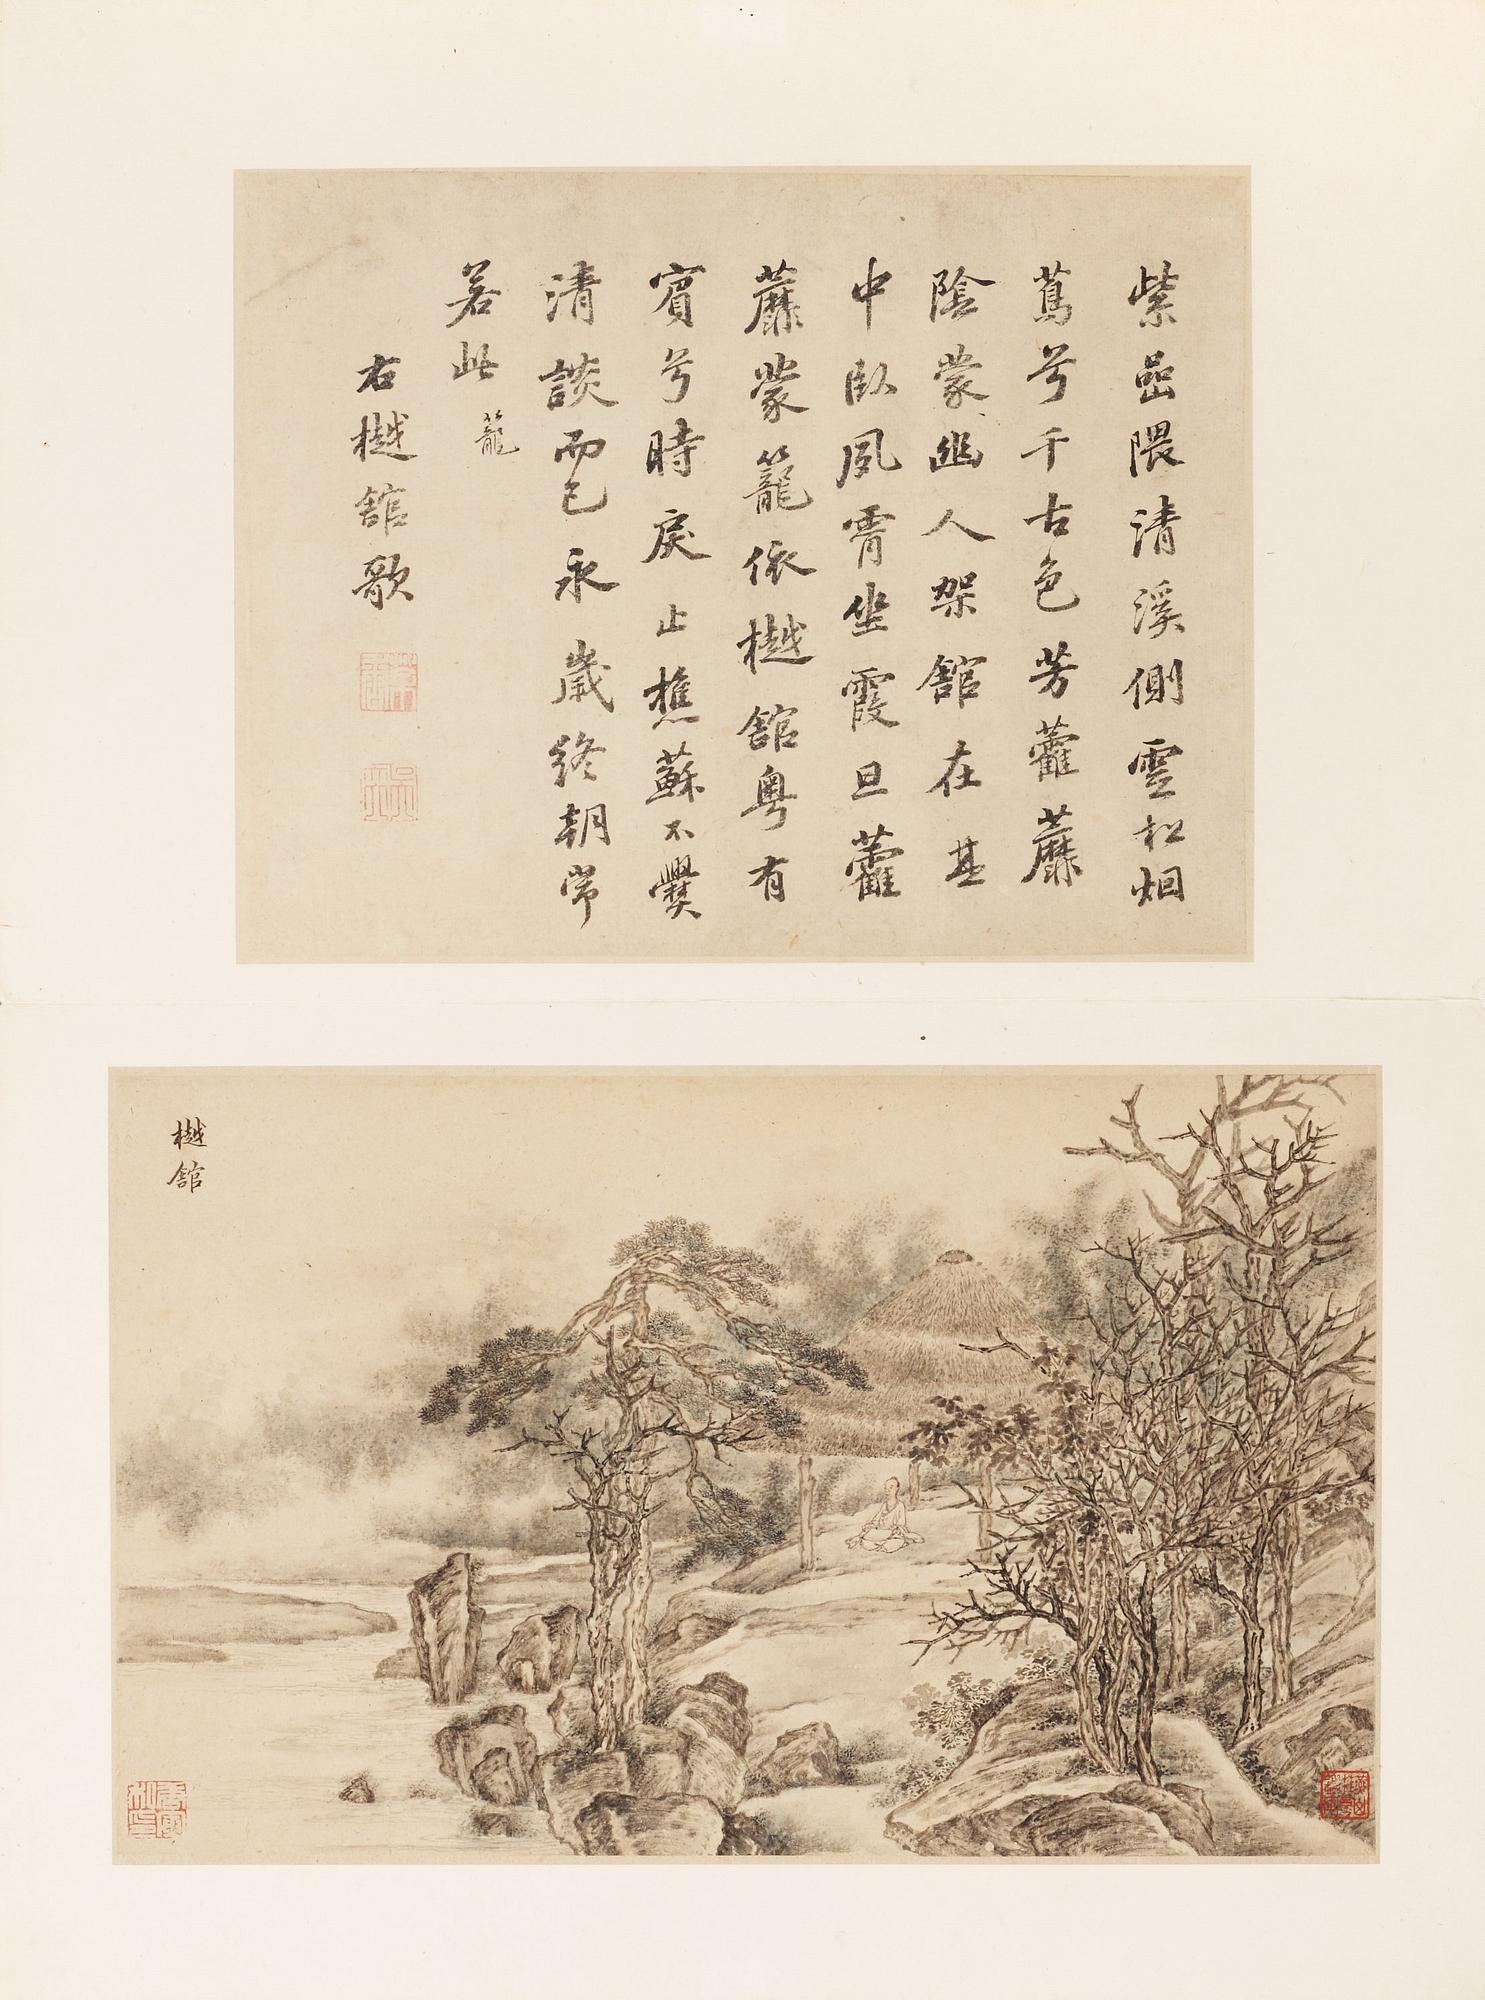 紫嵒隈清溪側雲松烟
蔦兮千古色芳藿蘼
陰蒙幽人架舘在其
中臥風霄坐霞旦藿
蘼蒙籠依樾舘粵有
賓兮時戾止樵蘇不爨
清談而已永歲終朝常
若此 籠
右樾舘歌
樾舘